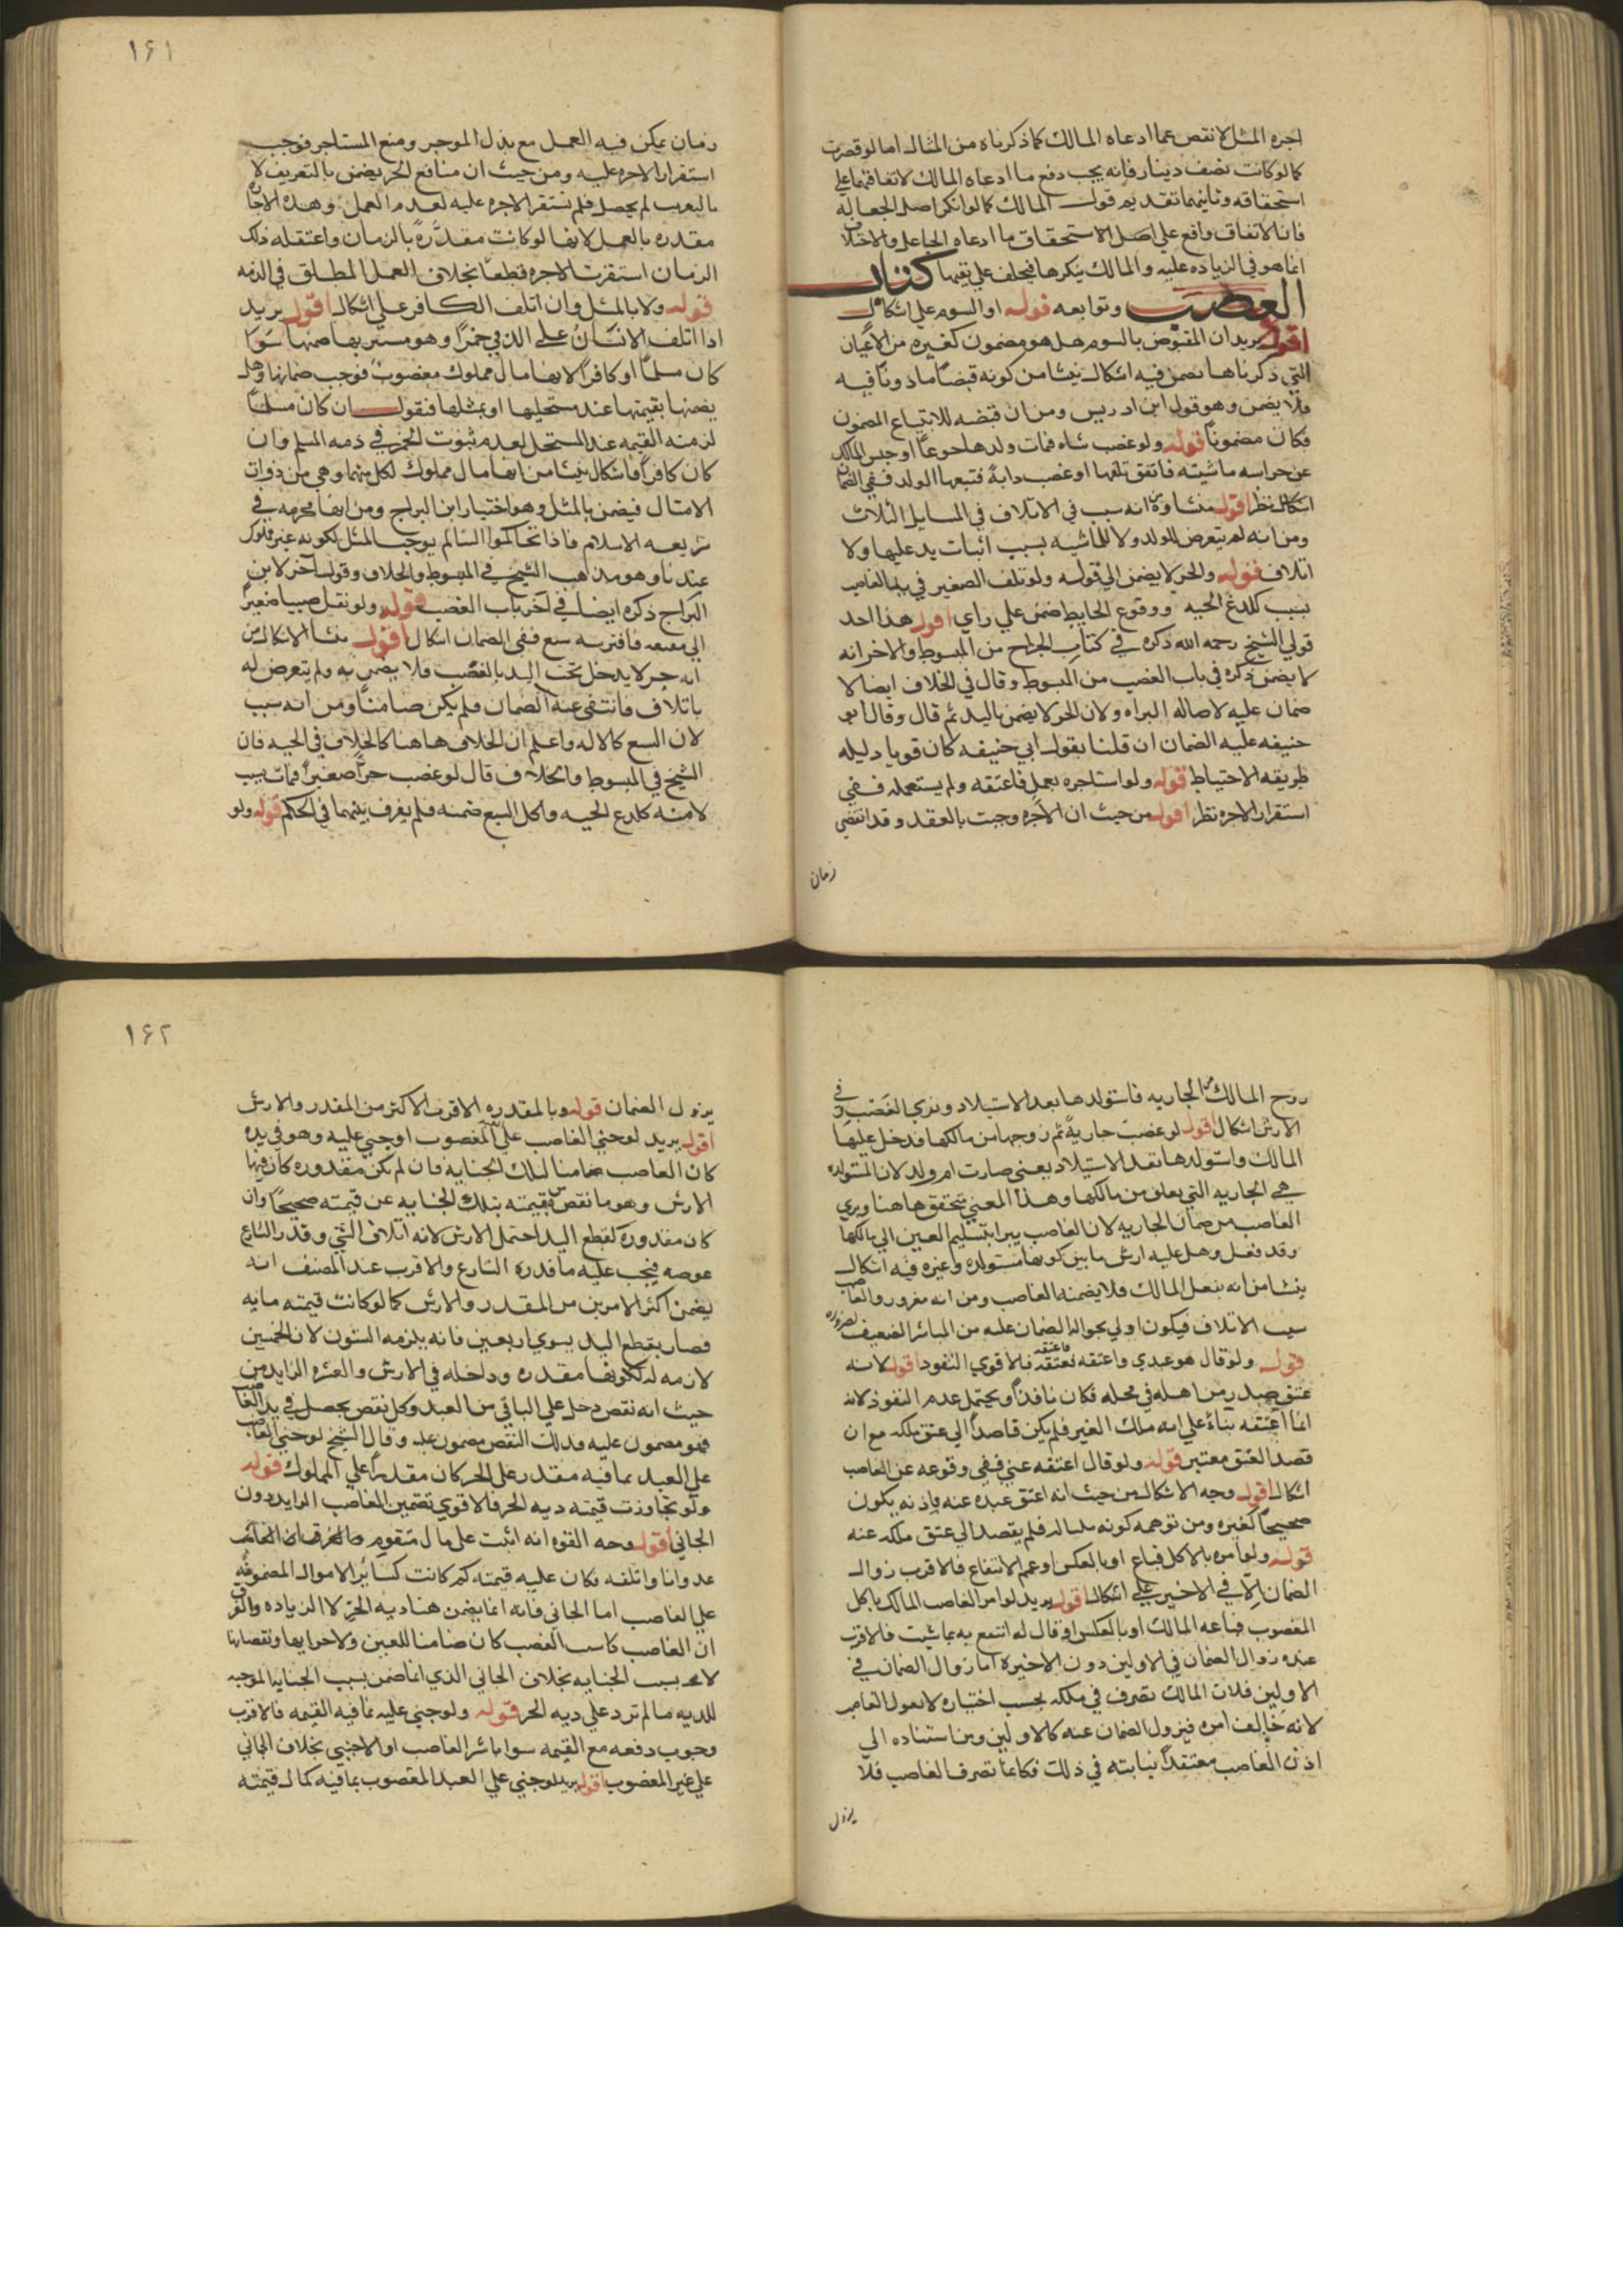 اجره المثل لا نقص عما ادعاه المالك كما ذكرناه من المثال اما لو قصرت
كما لو كانت نصف دينار فانه يجب دفع ما ادعاه المالك لاتفاقهما علي
استحقاقه وثانيهما تقديم قول المالك كما لو انكر اصل الجعاله
فان الاتفاق واقع علي اصل الاستحقاق ما ادعاه الجاعل والاختلاف
انما هو في الزياده عليه والمالك ينكرها فيحلف علي نفيها كتاب
الغصب وتوابعه قوله او السوم علي اشكال
اقول يريد ان المقبوض بالسوم هل هو مضمون كغيره من الاعيان
التي ذكرناها نضمن فيه اشكال ينشا من كونه قبضا ماذونا فيه
فلا يضمن وهو قول ابن ادريس ومن ان قبضه للابتياع المضمون
فكان مضمونا قوله ولو غصب شاه فمات ولدها جوعا او حبس المالك
عن حراسه ماشيته فاتفق تلفها او غصب دابة فتبعها الولد ففي الضمان
اشكال نظر اقول منشاوه انه سبب في الاتلاف في المسايل الثلاث
ومن انه لم يتعرض للولد ولا للماشيه بسبب اثبات يد عليها ولا
اتلاف قوله والحر لا يضمن الي قوله ولو تلف الصغير في يد الغاصب
بسبب كلدغ الحيه ووقوع الحايط ضمن علي راي اقول هذا احد
قولي الشيخ رحمه الله ذكره في كتاب الجراح من المبسوط والاخر انه
لا يضمن ذكره في باب الغصب من المبسوط وقال في الخلاف ايضا لا
ضمان عليه لاصاله البراه ولان الحر لا يضمن باليد ثم قال وقال ابو
حنيفه عليه الضمان ان قلنا بقول ابي حنيفه كان قويا دليله
طريقه الاحتياط قوله ولو استاجره بعمل فاعتقه ولم يستعمله ففي
استقرار الاجره نظر اقول من حيث ان الاجره وجبت بالعقد وقد انقضي
زمان
١٦١
زمان يمكن فيه العمل مع بذل الموجر ومنع المستاجر فوجب
استقرار الاجره عليه ومن حيث ان منافع الحر يضمن بالتفويت لا
لم يحصل فلم يستقر الاجره عليه لعدم العمل وهذه الاجاره
مقدره بالعمل لانها لو كانت مقدَّرةً بالزمان واعتقله ذلك
الزمان استقرت الاجره قطعًا بخلاف العمل المطلق في الذمه
قوله ولا بالمثل وان اتلف الكافر علي اشكال اقول يريد
اذا اتلف الانسان علي الذمي خمرًا وهو مستتر بها ضمنها سوا
كان مسلما او كافرًا لانها مال مملوك معصوب فوجب ضمانها وهل
يضمنها بقيمتها عند مستحليها او بمثلها فنقول ان كان مسلما
لزمته القيمه عند المستحل لعدم ثبوت الخمر في ذمه المسلم وان
كان كافرًا فاشكال ينشا من انها مال مملوك لكل منهما وهي من ذوات
الامثال فيضمن بالمثل وهو اختيار ابن البراج ومن انها محرمه في
شريعه الاسلام فاذا تحاكموا الينا لم يوجب المثل لكونه غير مملوك
عندنا وهو مذهب الشيخ في المبسوط والخلاف وقول آخر لابن
البراج ذكره ايضا في آخر باب الغصب قوله ولو نقل صبيا صغيرًا
الي مسبعه فافترسه سبع ففي الضمان اشكال اقول منشا الاشكال من
انه حر لا يدخل تحت اليد بالغصب فلا يضمن به ولم يتعرض له
باتلاف فانتفي عنه الضمان فلم يكن ضامنًا ومن انه سبب
لان السبع كالاله واعلم ان الخلاف هاهنا كالخلاف في الحيه فان
الشيخ في المبسوط والخلاف قال لو غصب حرًا صغيرًا فمات بسبب
لامنه كلدغ الحيه واكل السبع ضمنه فلم يفرق بينهما في الحكم قوله ولو
زوج المالك من الجاريه فاستولدها بعد الاستيلاد وبري الغصب وفي
الارش اشكال اقول لو غصب جاريةً ثم زوجها من مالكها فدخل عليها
المالك واستولدها نفذ الاستيلاد يعني صارت ام ولد لان المستولده
هي الجاريه التي يعلق من مالكها وهذا المعني متحقق هاهنا ويبري
الغاصب من ضمان الجاريه لان الغاصب يبرا بتسليم العين الي مالكها
وقد فعل وهل عليه ارش ما بين كونها مستولده وغيره فيه اشكال
ينشا من انه بفعل المالك فلا يضمنه الغاصب ومن انه مغرور والغاصب
سبب الاتلاف فيكون اولي بحوالة الضمان عليه من المباشر الضعيف لغروره
قوله ولو قال هو عبدي واعتقه فاعتقه فالاقوي النفوذ اقول لانه
عتق صدر من اهله في محله فكان نافذًا ويحتمل عدم النفوذ لانه
انما اعتقه بناءً علي انه ملك الغير فلم يكن قاصدًا الي عتق ملكه مع ان
قصد العتق معتبر قوله ولو قال اعتقه عني ففي وقوعه عن الغاصب
اشكال اقول وجه الاشكال من حيث انه اعتق عبده عنه باذنه يكون
صحيحًا كغيره ومن توهمه كونه فلم يقصد الي عتق ملكه عنه
قوله ولو امره بالاكل فباع او بالعكس او عمم الانتفاع فالاقرب زوال
الضمان الّا في الاخير علي اشكال اقول يريد لو امر الغاصب المالك باكل
المغصوب فباعه المالك او بالعكس او قال له انتفع به بما شيت فالاقرب
عنده زوال الضمان في الاولين دون الاخيره اما زوال الضمان في
الاولين فلان المالك تصرف في ملكه بحسب اختياره لا بقول الغاصب
لانه خالف امره فيزول الضمان عنه كالاولين ومن استناده الي
اذن الغاصب معتقدًا نيابته في ذلك فكانما تصرف الغاصب فلا
يزول
١٦٢
يزول الضمان قوله وبالمقدره الاقرب الاكثر من المقدر والارش
اقول يريد لو جني الغاصب علي المغصوب او جني عليه وهو في يده
كان الغاصب ضامنا لتلك الجنايه فان لم يكن مقدوره كان فيها
الارش وهو ما نقص من قيمته بتلك الجنايه عن قيمته صحيحًا وان
كان مقدورة كقطع اليد احتمل الارش لانه اتلاف الشي وقدر الشارع
عوضه فيجب عليه ما قدره الشارع والاقرب عند المصنف انه
يضمن اكثر الامرين من المقدر والارش كما لو كانت قيمته مايه
فصار بقطع اليد يسوي اربعين فانه يلزمه الستون لان الخمسين
لازمه له لكونها مقدره وداخله في الارش والعشره الزايده من
حيث انه نقص دخل علي الباقي من العبد وكل نقص يحصل في يد الغاصب
فهو مضمون عليه فذلك النقص مضمون عليه وقال الشيخ لو جني الغاصب
علي العبد بما فيه مقدر علي الحر كان مقدرًا علي المملوك قوله
ولو تجاوزت قيمته ديه الحر فالاقوي تضمين الغاصب الزايد دون
الجاني اقول وجه القوه انه اثبت علي مال متقوم
عدوانا واتلفه فكان عليه قيمته كم كانت كسائر الاموال المضمونه
علي الغاصب اما الجاني فانه انما يضمن هنا ديه الحرّ لا الزياده والفرق
ان الغاصب الغصب كان ضامنا للعين ولاجزايها ونقصانها
لا بسبب الجنايه بخلاف الجاني الذي انما ضمن بسبب الجنايه الموجبه
للديه ما لم تزد علي ديه الحر قوله ولو جني عليه بما فيه القيمه فالاقرب
وجوب دفعه مع القيمه سوا باشر الغاصب او الاجنبي بخلاف الجاني
علي غير المغصوب اقول يريد لو جني علي العبد المغصوب بما فيه كمال قيمته